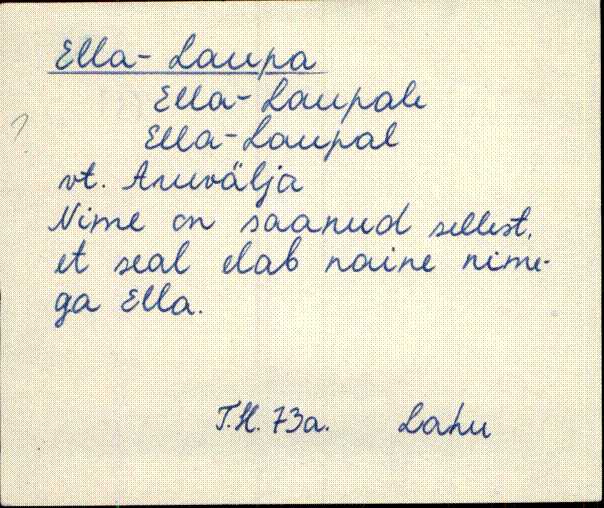 Ella-Laupa
Ella-Laupale
?
Ella-Laupal
vt. Aruvälja
Nime on saanud sellest,
et seal elab naine nime-
ga Ella.
T.H. 73a. Lahu